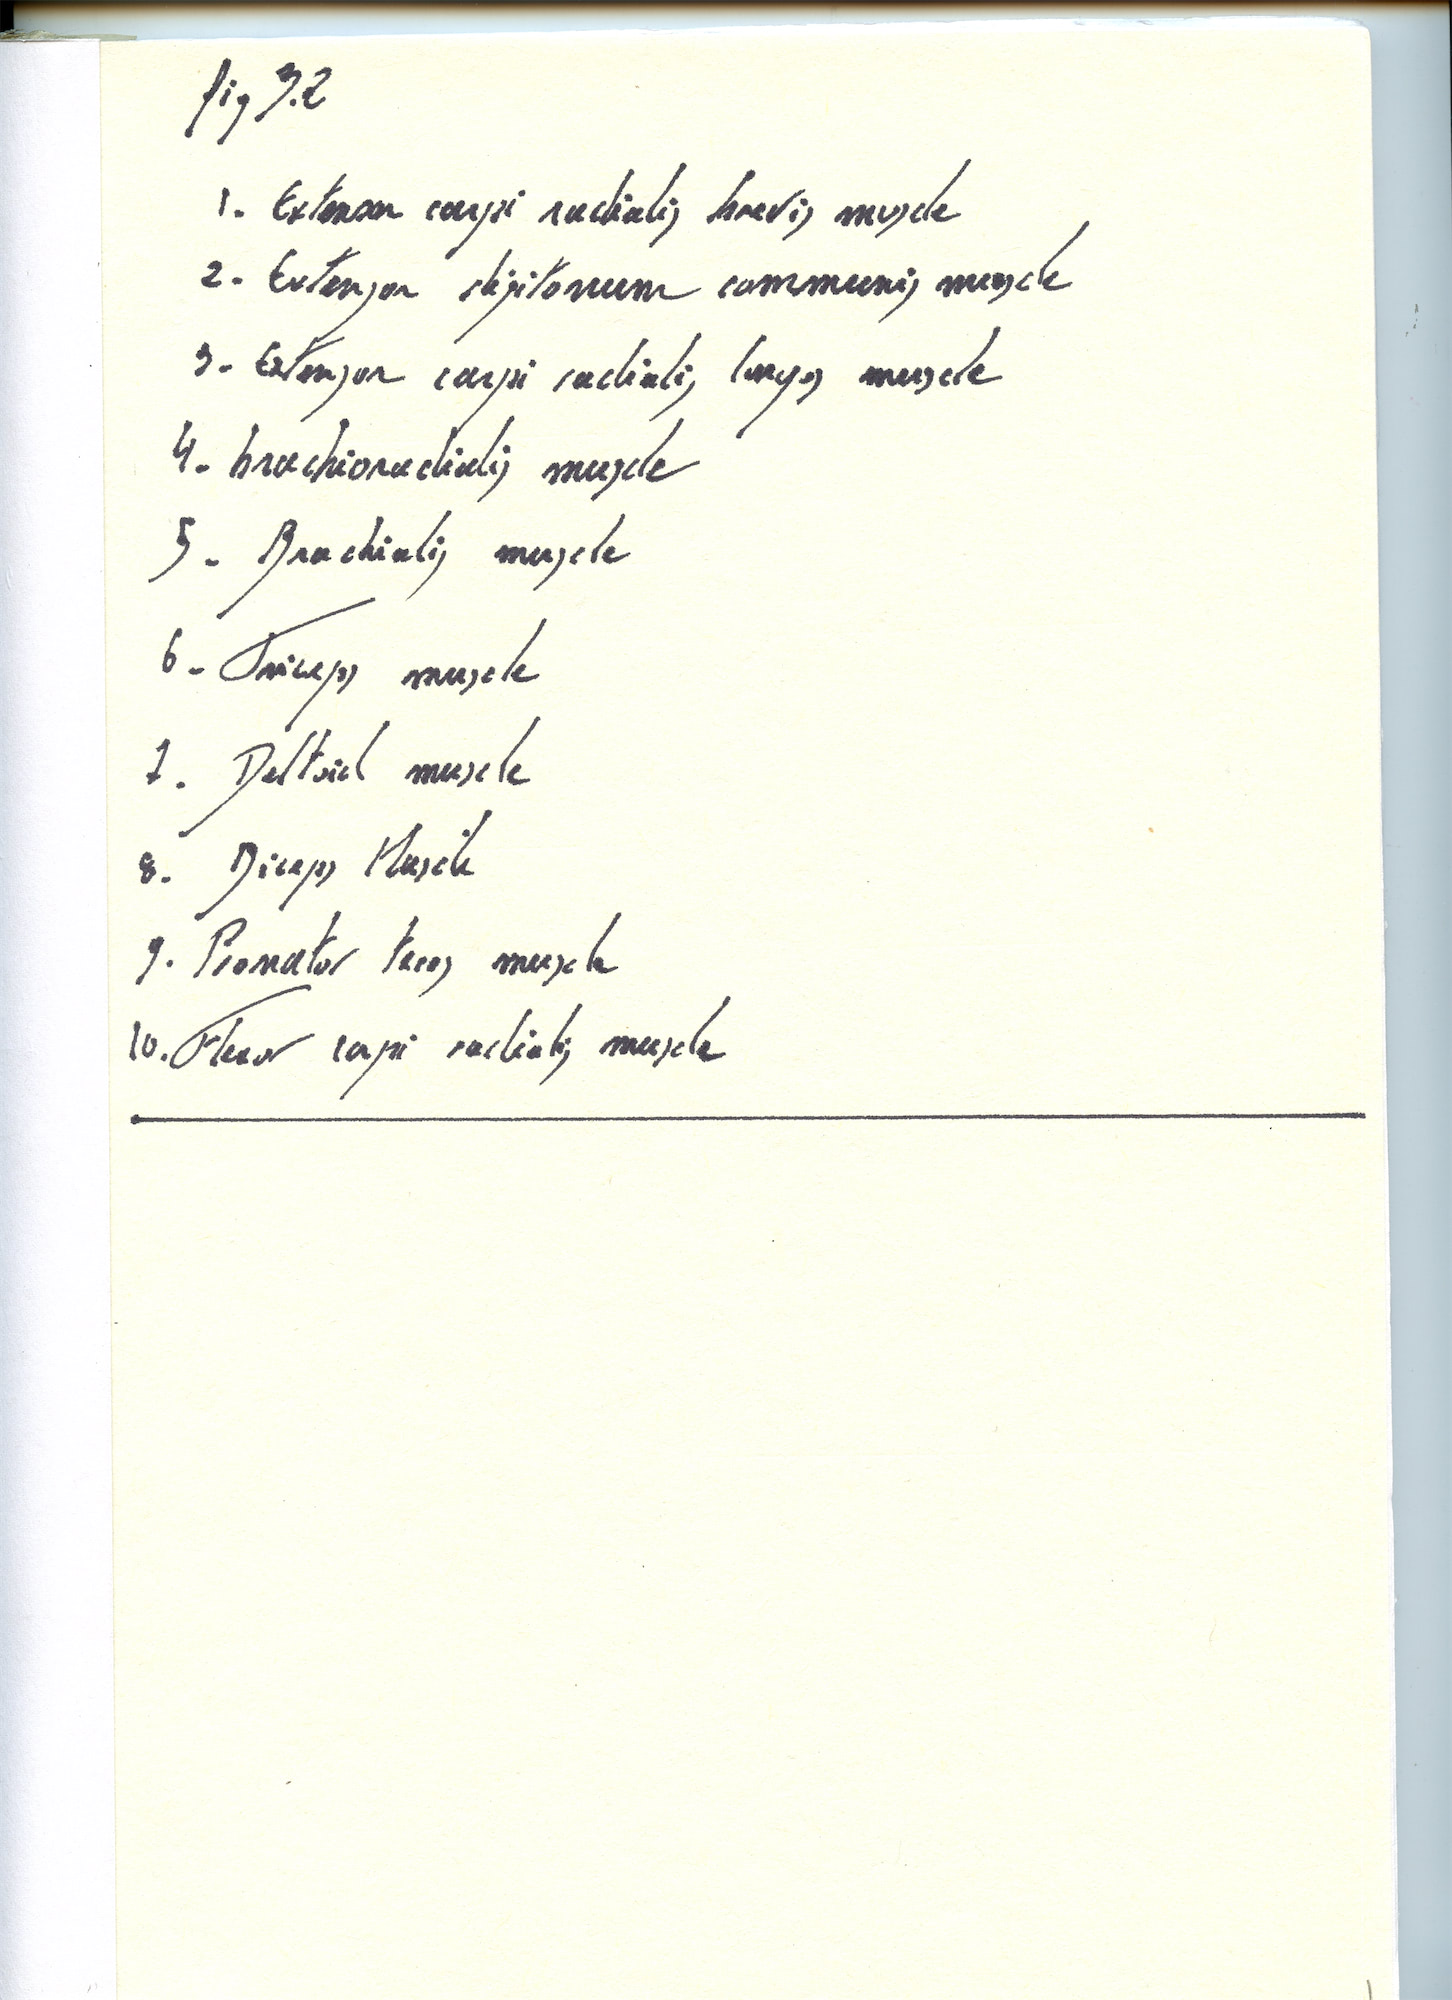 fig 3.2
1. Extensor carpi radialis brevis muscle
2. Extensor digitorum communis muscle
3. Extensor carpi radialis longus muscle
4. brachioradialis muscle
5. Brachialis muscle
6. Triceps muscle
7. Deltoid muscle
8. Biceps Muscle
9. Pronator teres muscle
10. Flexor carpi radialis muscle